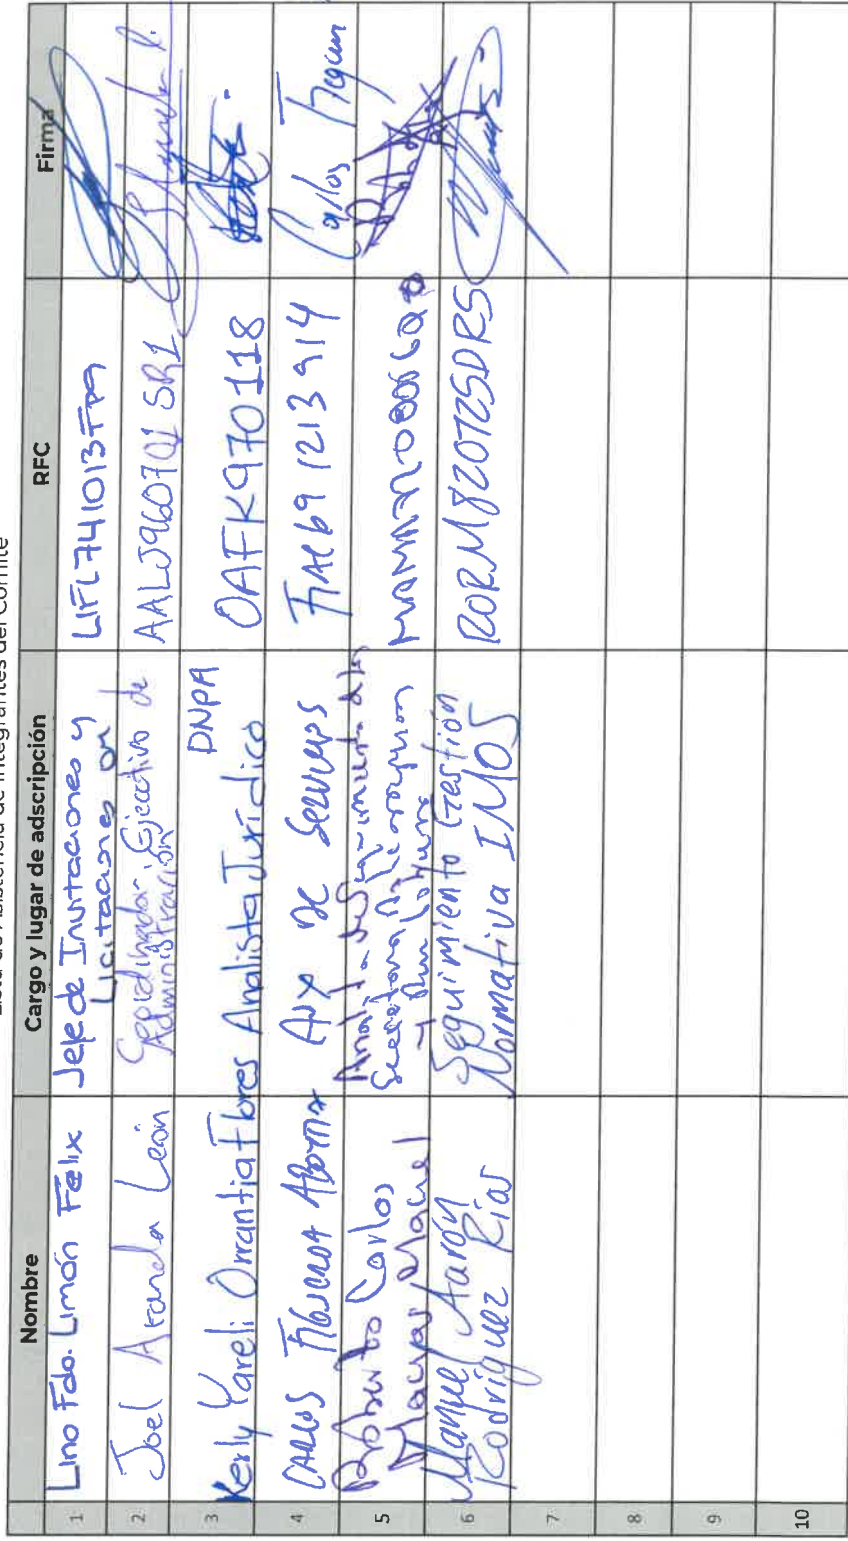 Lista de Asistencia de Integrantes del Comité
Nombre Cargo y lugar de adscripción RFC Firma
1 Lino Fdo. Limón Félix Jefe de Invitaciones y
Licitaciones
LIFL741013FP9
2 Joel Aranda León Coordinador Ejecutivo de
Administración
AALJ960701SR1
3 Kerly Yareli Orrantia Flores Analista Jurídico
DNPA
OAFK970118
4 Carlos Figueroa Aux de Servicios
FIAC691213914
Carlos Figueroa
5 Roberto Carlos
Analista
6 Manuel Aarón
Rodríguez Ríos
Seguimiento Gestión
Normativa IMOS
RORM820725DRS
7
8
9
10